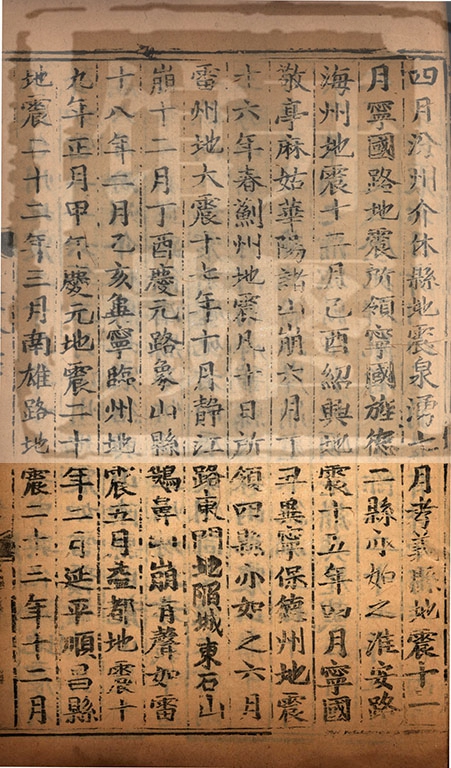 四月汾州介休縣地震泉湧七月孝義縣地震十二
月寧國路地震所領寧國旌德二縣亦如之淮安路
海州地震十二月己酉紹興地震十五年四月寧國
敬亭麻姑華陽諸山崩六月丁丑冀寧保德州地震
十六年春薊州地震凡十日所領四縣亦如之六月
雷州地大震十七年十月靜江路東門地陷城東石山
崩十二月丁酉慶元路象山縣鵝鼻山崩有聲如雷
十八年二月乙亥冀寧臨州地震五月益都地震十
九年正月甲午慶元地震二十年二月延平順昌縣
地震二十二年三月南雄路地震二十三年十二月